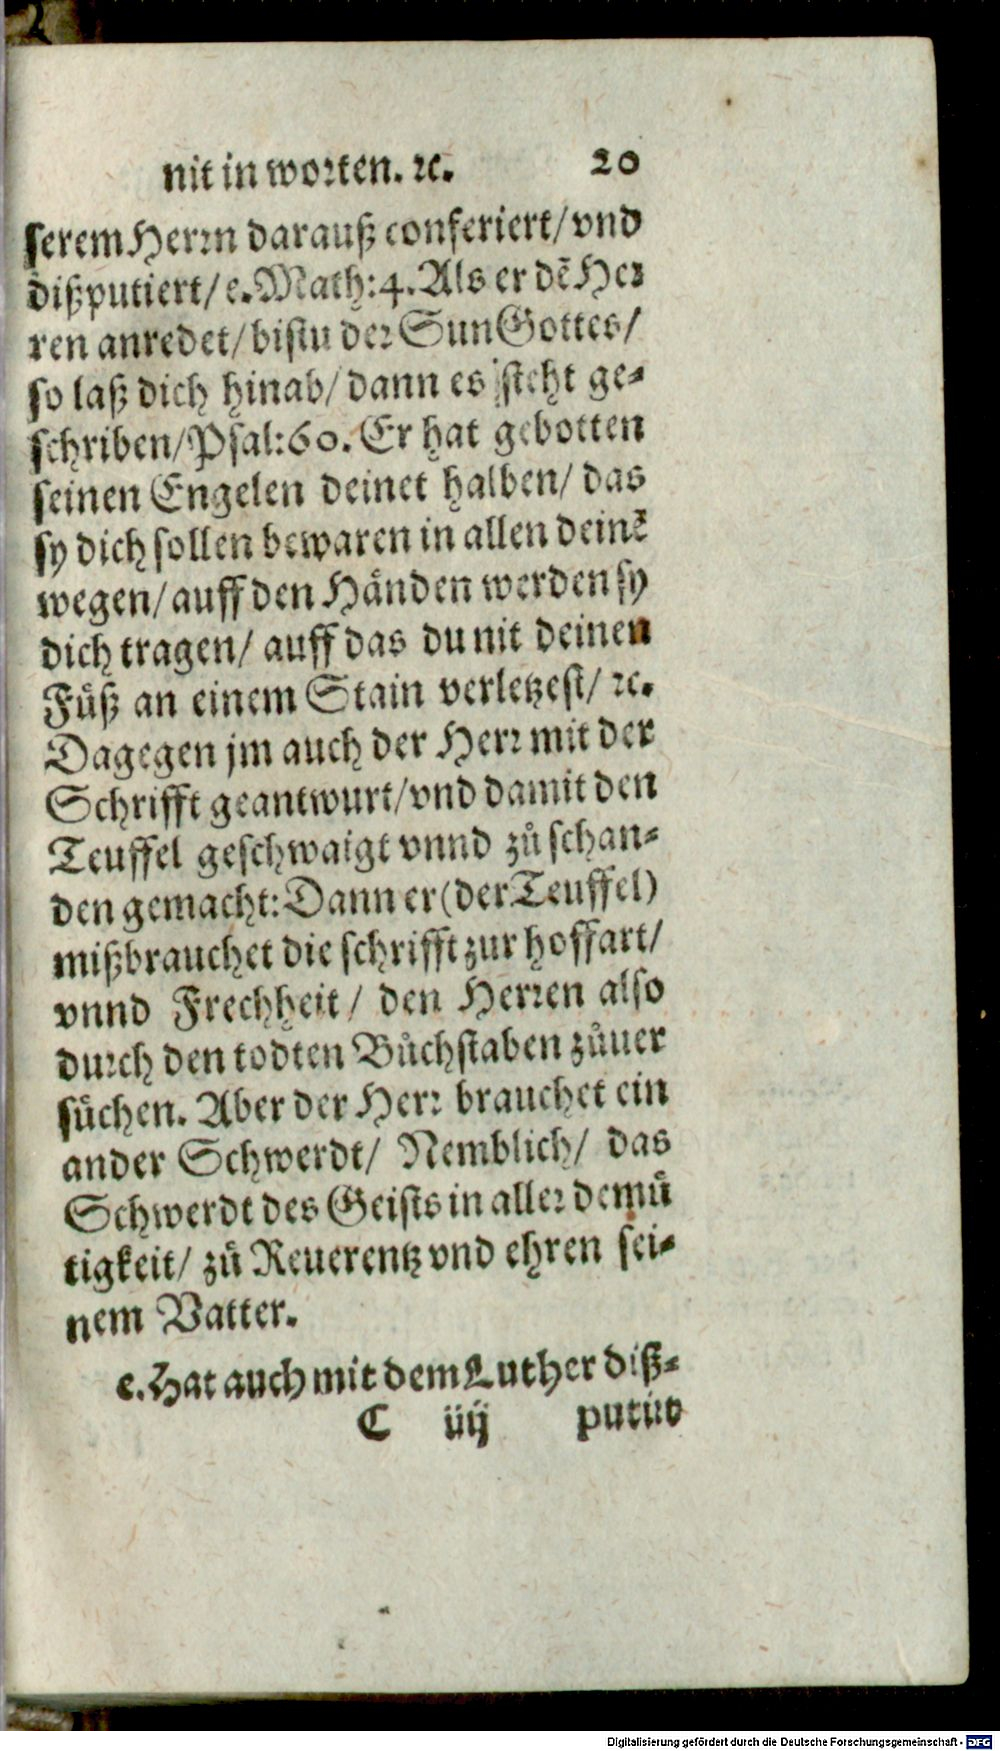 nit in worten. ꝛc. 20
serem Herrn darauß conferiert/ vnd
dißputiert/ e. Math: 4. Als er dẽ Her
ren anredet/ bistu der Sun Gottes/
so laß dich hinab/ dann es steht ge-
schriben/ Psal: 60. Er hat gebotten
seinen Engelen deinet halben/ das
sy dich sollen bewaren in allen deinẽ
wegen/ auff den Hånden werden sy
dich tragen/ auff das du nit deinen
Fůß an einem Stain verletzest/ ꝛc.
Dagegen jm auch der Herr mit der
Schrifft geantwurt/ vnd damit den
Teuffel geschwaigt vnnd zů schan-
den gemacht: Dann er (der Teuffel)
mißbrauchet die schrifft zur hoffart/
vnnd Frechheit/ den Herren also
durch den todten Bůchstaben zůuer
sůchen. Aber der Herr brauchet ein
ander Schwerdt/ Nemblich/ das
Schwerdt des Geists in aller demů
tigkeit/ zů Reuerentz vnd ehren sei-
nem Vatter.
e. Hat auch mit dem Luther diß-
C iiij putiert
Digitalisierung gefördert durch die Deutsche Forschungsgemeinschaft - DFG